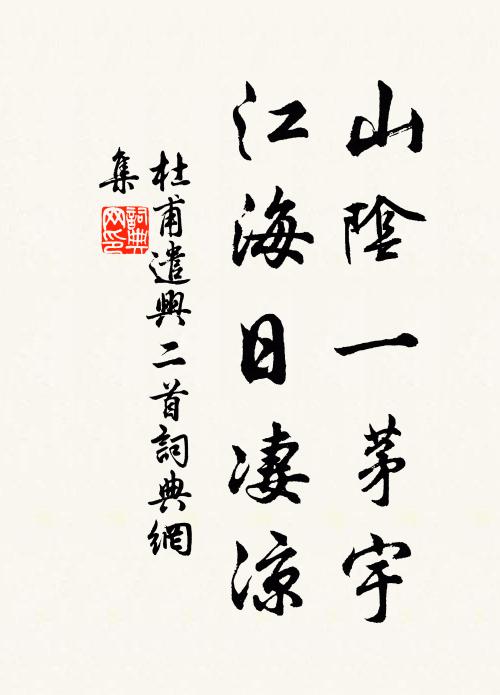 山陰一茅宇
江海日凄涼
杜甫遣興二首詞典網
集
詞典
网印